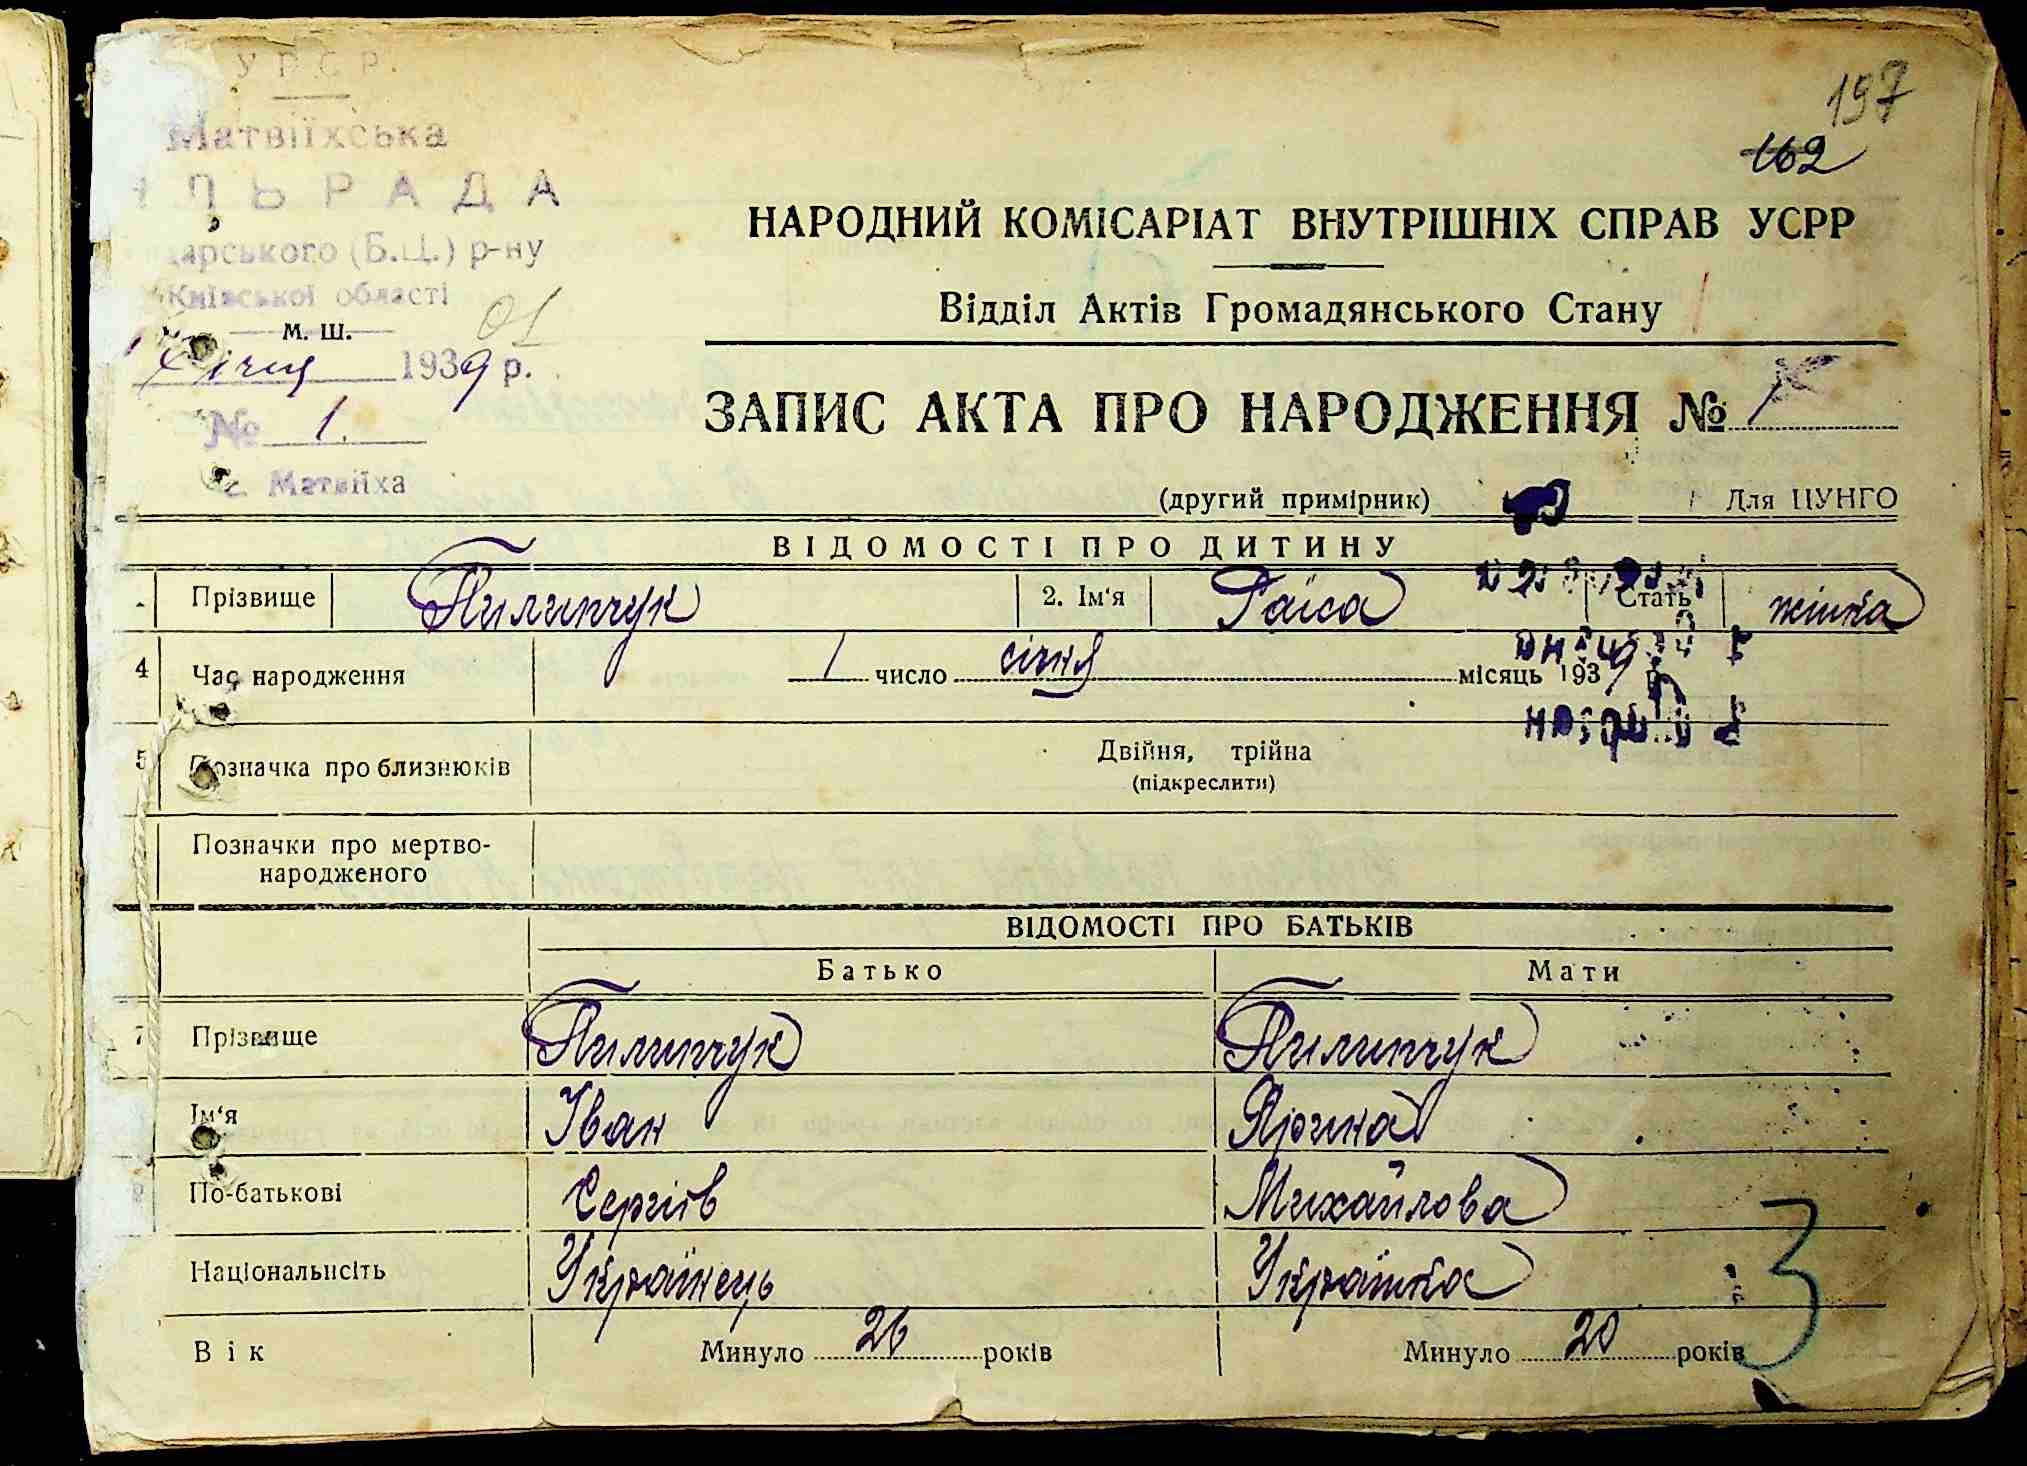 УРСР.
Матвіїхська
ІЛЬРАДА
дарського (Б.Ц.) р-ну
Київської області
М. Ш.
01
січня 1939 р.
№ 1.
с. Матвіїха
197
162
НАРОДНИЙ КОМІСАРІАТ ВНУТРІШНІХ СПРАВ УСРР
Відділ Актів Громадянського Стану
ЗАПИС АКТА ПРО НАРОДЖЕННЯ № 1
(другий примірник) Для ЦУНГО
ВІДОМОСТІ ПРО ДИТИНУ
Прізвище Пилипчук 2. Ім'я Раїса Стать жінка
4 Час народження 1 число січня місяць 1939 р.
5 Позначка про близнюків Двійня, трійня
(підкреслити)
Позначки про мертво-
народженого
ВІДОМОСТІ ПРО БАТЬКІВ
Батько Мати
7 Прізвище Пилипчук Пилипчук
Ім'я Іван Ярина
9 По-батькові Сергіїв Михайлова
Національність Українець Українка
Вік Минуло 26 років Минуло 20 років
3